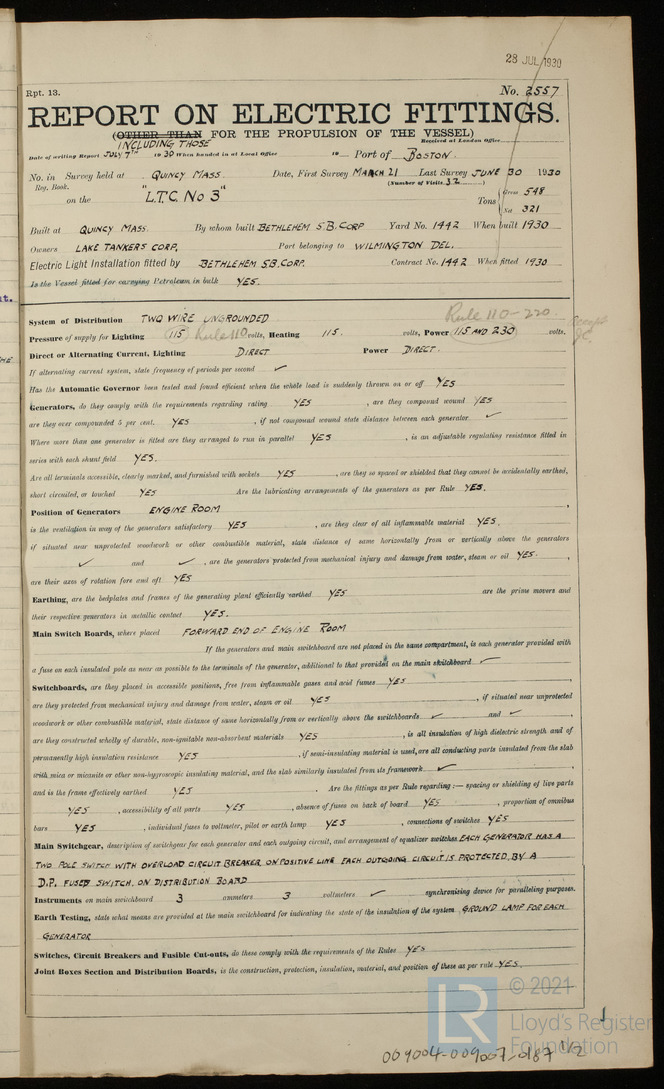 28 JUL 1930
Rpt. 13.
No. 2557
REPORT ON ELECTRIC FITTINGS.
(OTHER THAN FOR THE PROPULSION OF THE VESSEL)
INCLUDING THOSE
Received at London Office
Date of writing Report JULY 7TH 1930 When handed in at Local Office 19 Port of BOSTON.
No. in Survey held at QUINCY MASS. Date, First Survey MARCH 21 Last Survey JUNE 30 1930
Reg. Book. (Number of Visits 32)
on the "L.T.C. No 3" Tons { Gross 548
Net 321
Built at QUINCY MASS. By whom built BETHLEHEM S.B. CORP Yard No. 1442 When built 1930
Owners LAKE TANKERS CORP, Port belonging to WILMINGTON DEL.
Electric Light Installation fitted by BETHLEHEM S.B. CORP. Contract No. 1442 When fitted 1930
Is the Vessel fitted for carrying Petroleum in bulk YES.
System of Distribution TWO WIRE UNGROUNDED Rule 110-220
Pressure of supply for Lighting 115 Rule 110 volts, Heating 115. volts, Power 115 AND 230 volts.
Direct or Alternating Current, Lighting DIRECT Power DIRECT.
If alternating current system, state frequency of periods per second ✓
Has the Automatic Governor been tested and found efficient when the whole load is suddenly thrown on or off YES
Generators, do they comply with the requirements regarding rating YES , are they compound wound YES
are they over compounded 5 per cent. YES , if not compound wound state distance between each generator ✓
Where more than one generator is fitted are they arranged to run in parallel YES , is an adjustable regulating resistance fitted in
series with each shunt field YES.
Are all terminals accessible, clearly marked, and furnished with sockets YES , are they so spaced or shielded that they cannot be accidentally earthed,
short circuited, or touched YES Are the lubricating arrangements of the generators as per Rule YES.
Position of Generators ENGINE ROOM
is the ventilation in way of the generators satisfactory YES , are they clear of all inflammable material YES.
if situated near unprotected woodwork or other combustible material, state distance of same horizontally from or vertically above the generators
✓ and ✓ , are the generators protected from mechanical injury and damage from water, steam or oil YES.
are their axes of rotation fore and aft YES
Earthing, are the bedplates and frames of the generating plant efficiently earthed YES are the prime movers and
their respective generators in metallic contact YES.
Main Switch Boards, where placed FORWARD END OF ENGINE ROOM
If the generators and main switchboard are not placed in the same compartment, is each generator provided with
a fuse on each insulated pole as near as possible to the terminals of the generator, additional to that provided on the main switchboard ✓
Switchboards, are they placed in accessible positions, free from inflammable gases and acid fumes YES
are they protected from mechanical injury and damage from water, steam or oil YES , if situated near unprotected
woodwork or other combustible material, state distance of same horizontally from or vertically above the switchboards ✓ and ✓
are they constructed wholly of durable, non-ignitable non-absorbent materials YES , is all insulation of high dielectric strength and of
permanently high insulation resistance YES , if semi-insulating material is used, are all conducting parts insulated from the slab
with mica or micanite or other non-hygroscopic insulating material, and the slab similarly insulated from its framework ✓
and is the frame effectively earthed YES . Are the fittings as per Rule regarding:— spacing or shielding of live parts
YES , accessibility of all parts YES , absence of fuses on back of board YES , proportion of omnibus
bars YES , individual fuses to voltmeter, pilot or earth lamp YES , connections of switches YES
Main Switchgear, description of switchgear for each generator and each outgoing circuit, and arrangement of equalizer switches EACH GENERATOR HAS A
TWO POLE SWITCH WITH OVERLOAD CIRCUIT BREAKER ON POSITIVE LINE EACH OUTGOING CIRCUIT IS PROTECTED BY A
D.P. FUSED SWITCH. ON DISTRIBUTION BOARD
Instruments on main switchboard 3 ammeters 3 voltmeters ✓ synchronising device for paralleling purposes.
Earth Testing, state what means are provided at the main switchboard for indicating the state of the insulation of the system GROUND LAMP FOR EACH
GENERATOR
Switches, Circuit Breakers and Fusible Cut-outs, do these comply with the requirements of the Rules YES
Joint Boxes Section and Distribution Boards, is the construction, protection, insulation, material, and position of these as per rule YES.
© 2021
LR Lloyd's Register
Foundation
009004-009007-0187 1/2